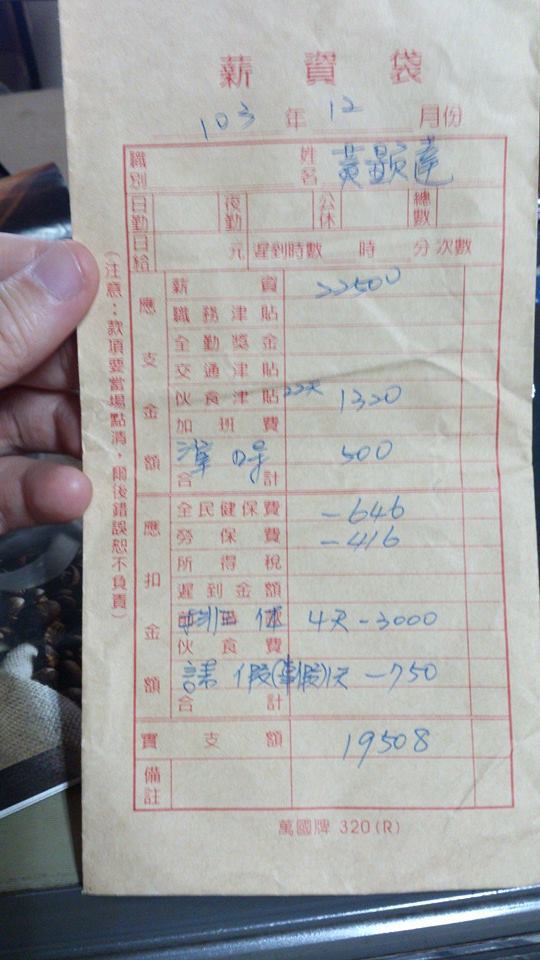 薪資袋
103年12月份
職別 姓名 黃顯達
日勤 夜勤 公休 總數
日給 元 遲到時數 時 分 次數
應支金額
薪資 22500
職務津貼
全勤獎金
交通津貼
伙食津貼 22天 1320
加班費
500
合計
應扣金額
全民健保費 -646
勞保費 -416
所得稅
遲到金額
4天 -3000
伙食費
請假(事假)1天 -750
合計
實支額 19508
備註
(注意：款項要當場點清，爾後錯誤恕不負責)
萬國牌 320(R)